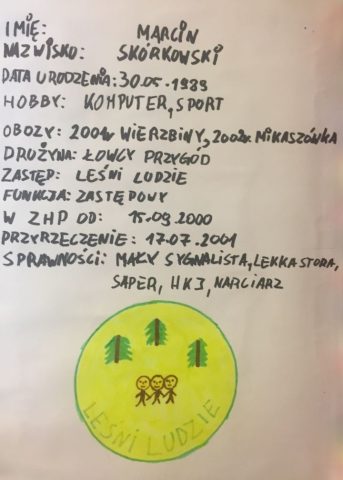 IMIĘ: MARCIN
NAZWISKO: SKÓRKOWSKI
DATA URODZENIA: 30.05.1989
HOBBY: KOMPUTER, SPORT
OBOZY: 2001r WIERZBINY, 2002r. MIKASZÓWKA
DRUŻYNA: ŁOWCY PRZYGÓD
ZASTĘP: LEŚNI LUDZIE
FUNKCJA: ZASTĘPOWY
W ZHP OD: 15.09.2000
PRZYRZECZENIE: 17.07.2001
SPRAWNOŚCI: MAŁY SYGNALISTA, LEKKA STOPA,
SAPER, HKJ, NARCIARZ
LEŚNI LUDZIE